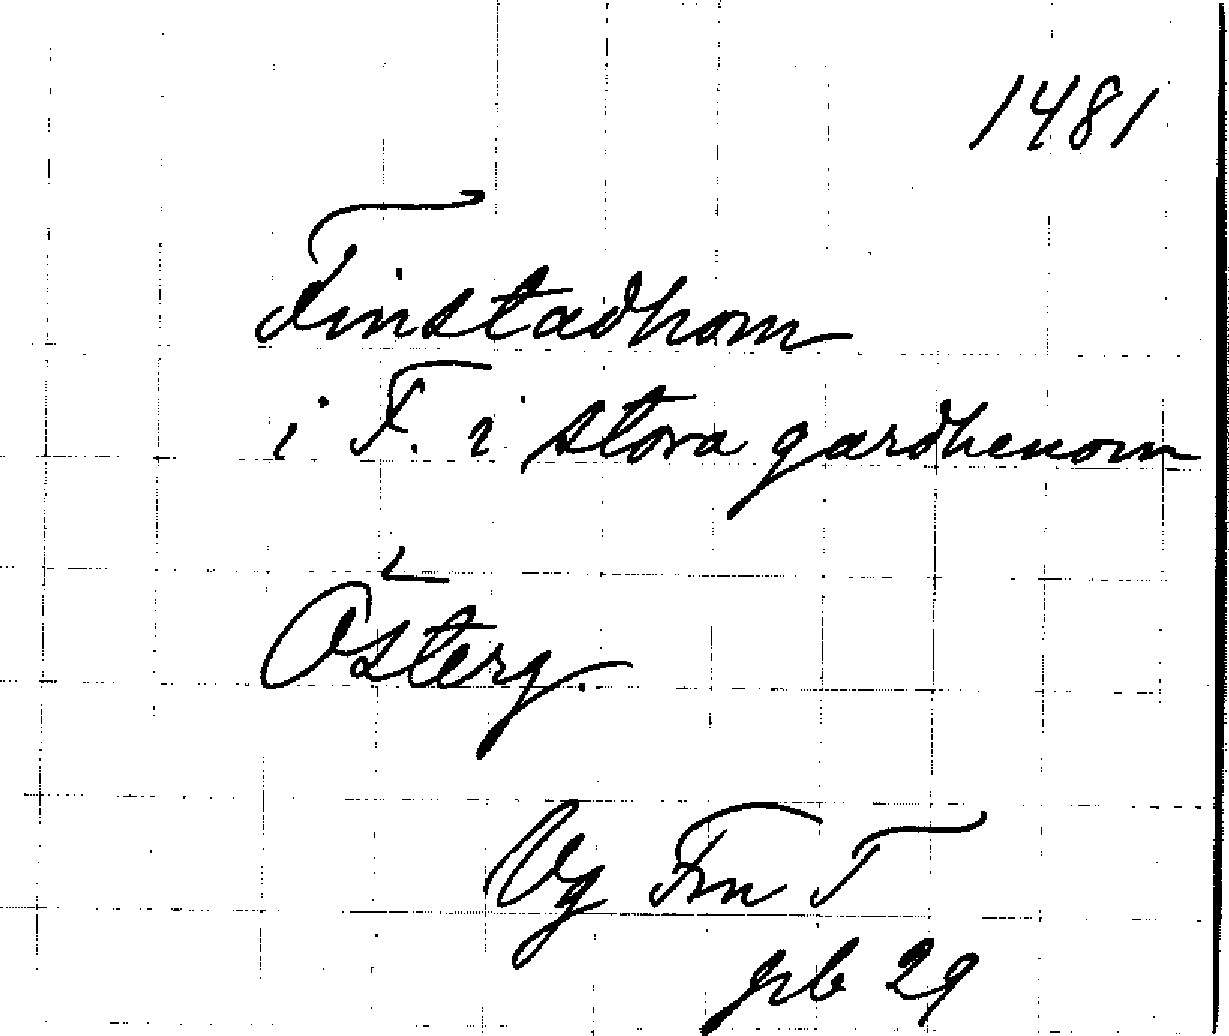 1481
Finstadhom
i F. i stora gardhenom
Österg.
Vg Fm T
pb 29